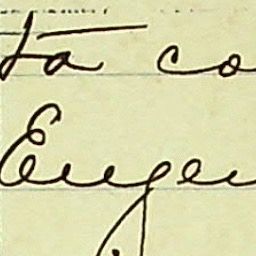 to co
Euge